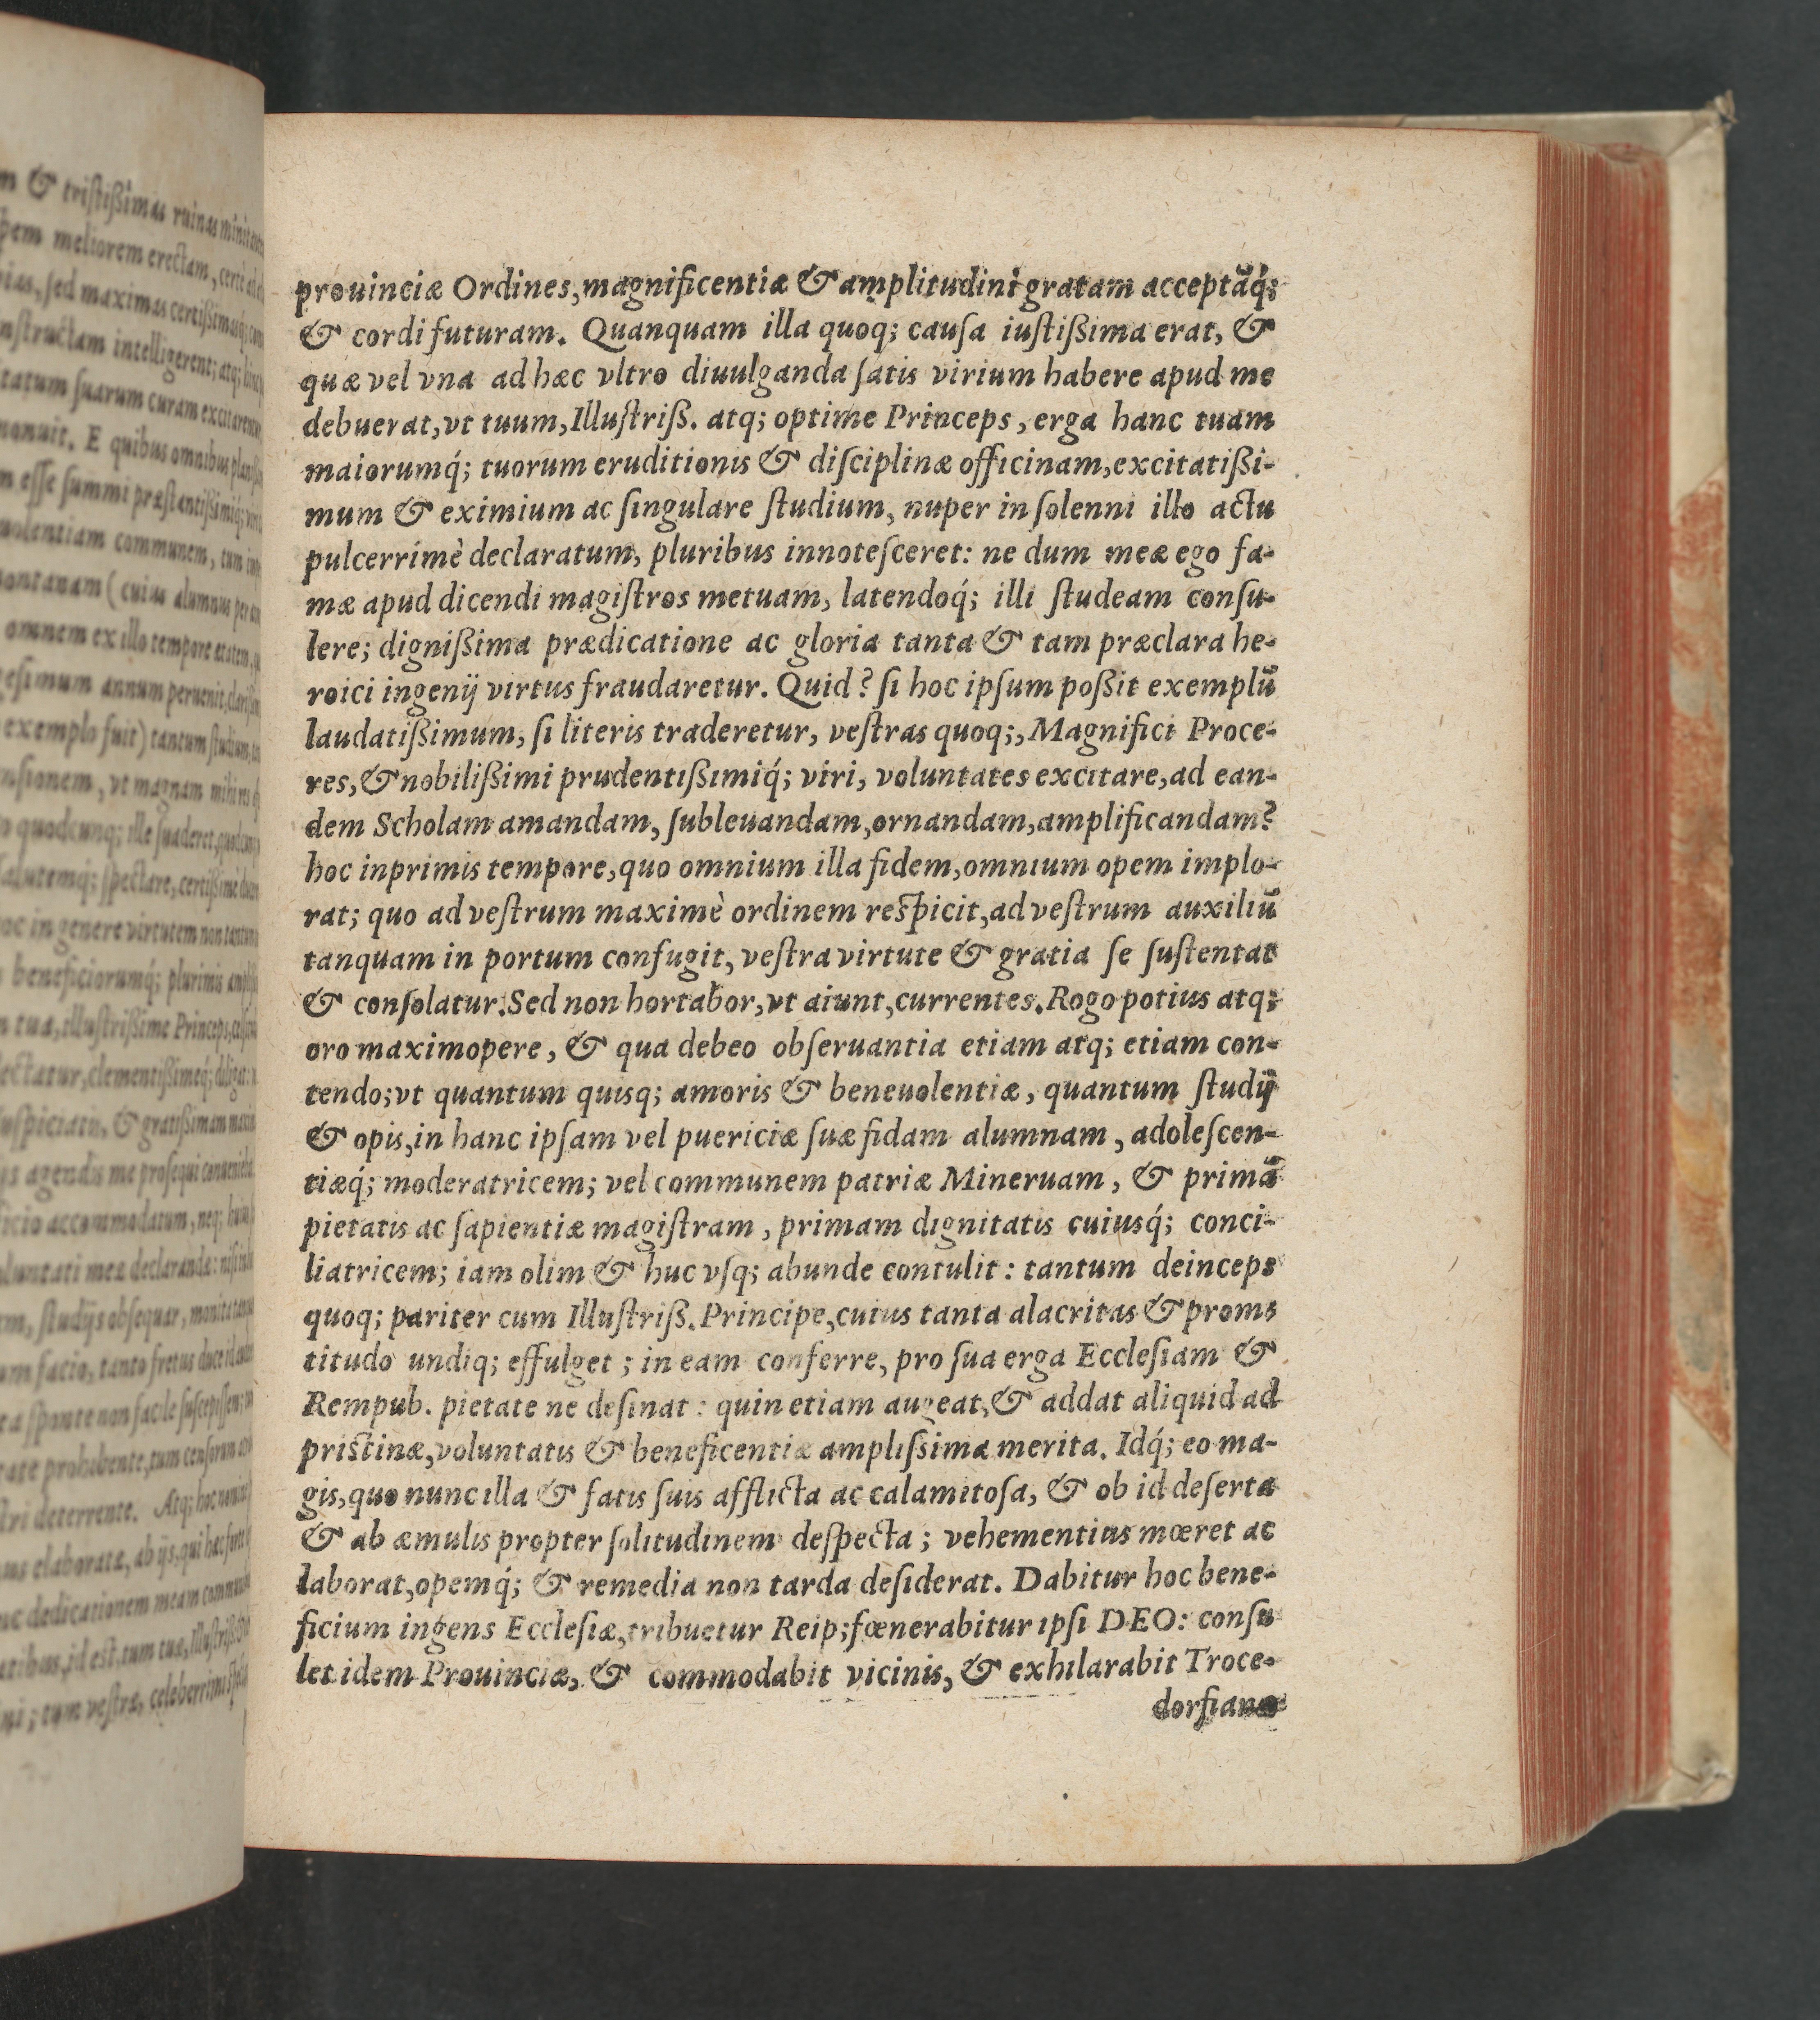 n & triſtißimas ruinas
pem meliorem erectam, certè
pias, ſed maximas certißimasq́;
nſtructam intelligerent; atq;
tatum ſuarum curam excitarentur
monuit. E quibus omnibus
m eſſe ſummi præſtantißimiq́;
uolentiam communem, tum
montanam (cuius alumnus per
omnem ex illo tempore ætatem,
geſimum annum peruenit,
exemplo fuit) tantum ſtudium,
nſionem, vt magnam mihi
quodcunq; ille ſuaderet,
ſalutemq́; ſpectare, certißimè
oc in genere virtutem non tantum
beneficiorumq́; plurimis
n tua, illuſtrißime Princeps,
lectatur, clementißimeq́;
uſpiciatu, & gratißimam
js agendis me proſequi
ficio accommodatum, neq;
oluntati meæ declarandæ:
m, ſtudijs obſequar,
um facio, tanto fretus duce
ea ſponte non facile ſuſcepiſſem;
prohibente, tum cenſorum
ſtri deterrente. Atq; hoc
elaborata, ab ijs, qui
dedicationem meam
id eſt, tum tuæ,
tum veſtræ, celeberrimi
prouinciæ Ordines, magnificentiæ & amplitudini gratam acceptāq́;
& cordi futuram. Quanquam illa quoq; cauſa iuſtißima erat, &
quæ vel vna ad hæc vltro diuulganda ſatis virium habere apud me
debuerat, vt tuum, Illuſtriß. atq; optime Princeps, erga hanc tuam
maiorumq́; tuorum eruditionis & diſciplinæ officinam, excitatißi-
mum & eximium ac ſingulare ſtudium, nuper in ſolenni illo actu
pulcerrimè declaratum, pluribus innoteſceret: ne dum meæ ego fa-
mæ apud dicendi magiſtros metuam, latendoq́; illi ſtudeam conſu-
lere; dignißima prædicatione ac gloria tanta & tam præclara he-
roici ingenij virtus fraudaretur. Quid? ſi hoc ipſum poßit exemplū
laudatißimum, ſi literis traderetur, veſtras quoq;, Magnifici Proce-
res, & nobilißimi prudentißimiq́; viri, voluntates excitare, ad ean-
dem Scholam amandam, ſubleuandam, ornandam, amplificandam?
hoc inprimis tempore, quo omnium illa fidem, omnium opem implo-
rat; quo ad veſtrum maximè ordinem reſpicit, ad veſtrum auxiliū
tanquam in portum confugit, veſtra virtute & gratia ſe ſuſtentat
& conſolatur. Sed non hortabor, vt aiunt, currentes. Rogo potius atq;
oro maximopere, & qua debeo obſeruantia etiam atq; etiam con-
tendo; vt quantum quisq; amoris & beneuolentiæ, quantum ſtudij
& opis, in hanc ipſam vel puericiæ ſuæ fidam alumnam, adoleſcen-
tiæq́; moderatricem; vel communem patriæ Mineruam, & primā
pietatis ac ſapientiæ magiſtram, primam dignitatis cuiusq́; conci-
liatricem; iam olim & huc vſq; abunde contulit: tantum deinceps
quoq; pariter cum Illuſtriß. Principe, cuius tanta alacritas & proms
titudo undiq; effulget; in eam conferre, pro ſua erga Eccleſiam &
Rempub. pietate ne deſinat: quin etiam augeat, & addat aliquid ad
priſtinæ, voluntatis & beneficentiæ ampliſsima merita. Idq́; eo ma-
gis, quo nunc illa & fatis ſuis afflicta ac calamitoſa, & ob id deſerta
& ab æmulis propter ſolitudinem deſpecta; vehementius mœret ac
laborat, opemq́; & remedia non tarda deſiderat. Dabitur hoc bene-
ficium ingens Eccleſiæ, tribuetur Reip; fœnerabitur ipſi DEO: conſu
let idem Prouinciæ, & commodabit vicinis, & exhilarabit Troce-
dorſiano